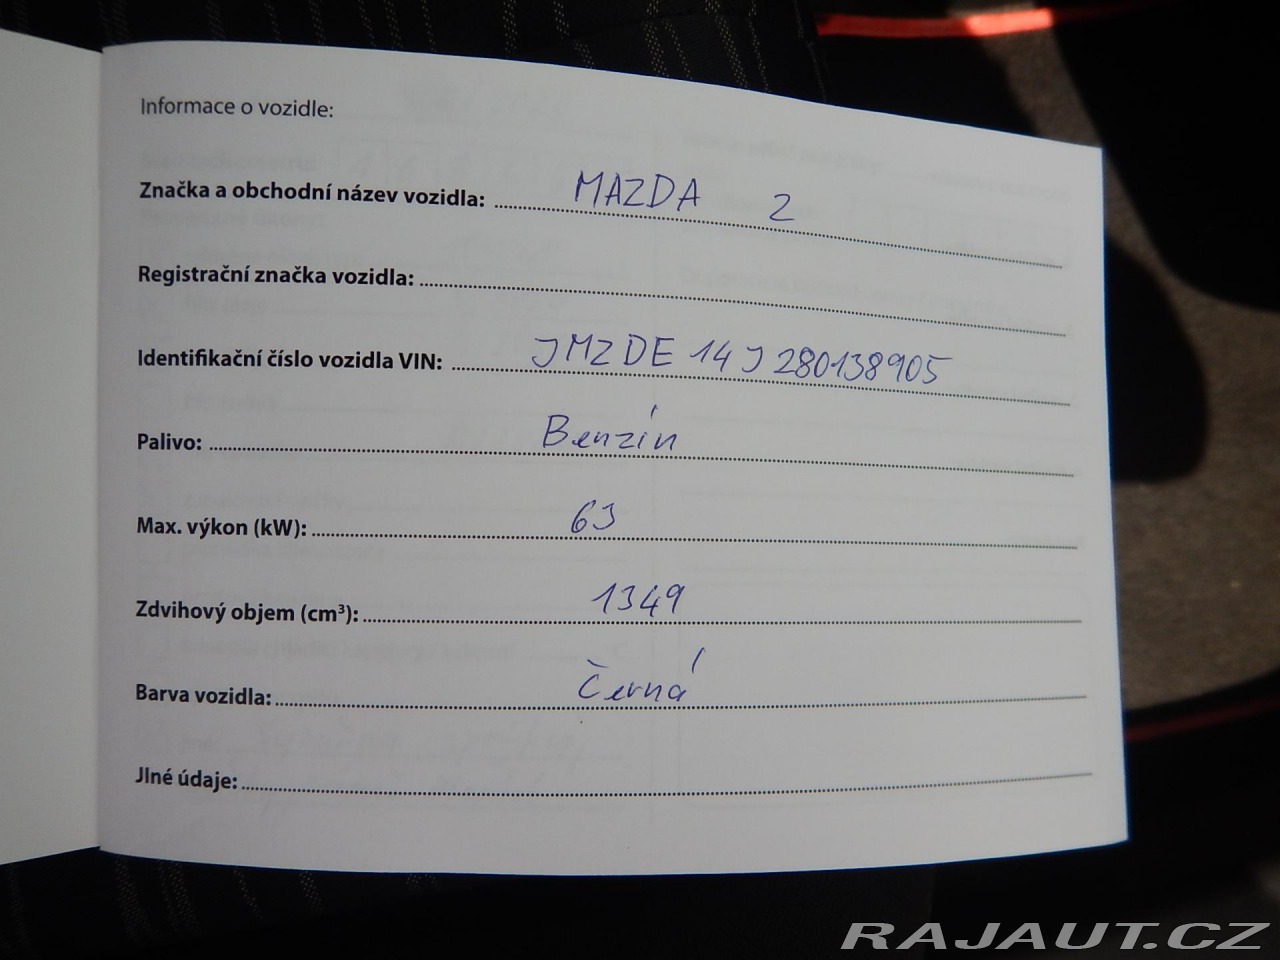 Informace o vozidle:
Značka a obchodní název vozidla: MAZDA 2
Registrační značka vozidla:
Identifikační číslo vozidla VIN: JMZDE14J280138905
Palivo: Benzín
Max. výkon (kW): 63
Zdvihový objem (cm³): 1349
Barva vozidla: Černá
Jlné údaje:
RAJAUT.CZ